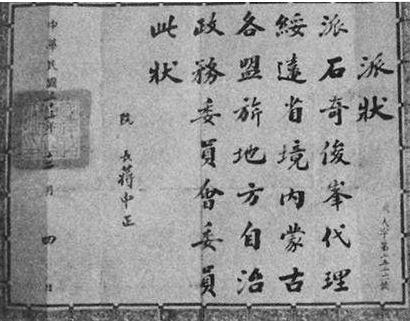 派狀
派石奇俊峯代理
綏遠省境內蒙古
各盟旂地方自治
政務委員會委員
此狀
院長蔣中正
中華民國 年 月四日